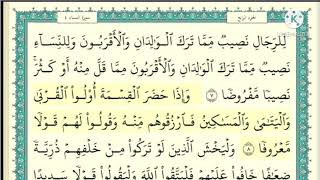 الجزء الرابع
سورة النساء ٤
لِّلرِّجَالِ نَصِيبٌ مِّمَّا تَرَكَ الْوَالِدَانِ وَالْأَقْرَبُونَ وَلِلنِّسَاءِ
نَصِيبٌ مِّمَّا تَرَكَ الْوَالِدَانِ وَالْأَقْرَبُونَ مِمَّا قَلَّ مِنْهُ أَوْ كَثُرَ
نَصِيبًا مَّفْرُوضًا ٧ وَإِذَا حَضَرَ الْقِسْمَةَ أُولُوا الْقُرْبَىٰ
وَالْيَتَامَىٰ وَالْمَسَاكِينُ فَارْزُقُوهُم مِّنْهُ وَقُولُوا لَهُمْ قَوْلًا
مَّعْرُوفًا ٨ وَلْيَخْشَ الَّذِينَ لَوْ تَرَكُوا مِنْ خَلْفِهِمْ ذُرِّيَّةً
ضِعَافًا خَافُوا عَلَيْهِمْ فَلْيَتَّقُوا اللَّهَ وَلْيَقُولُوا قَوْلًا سَدِيدًا